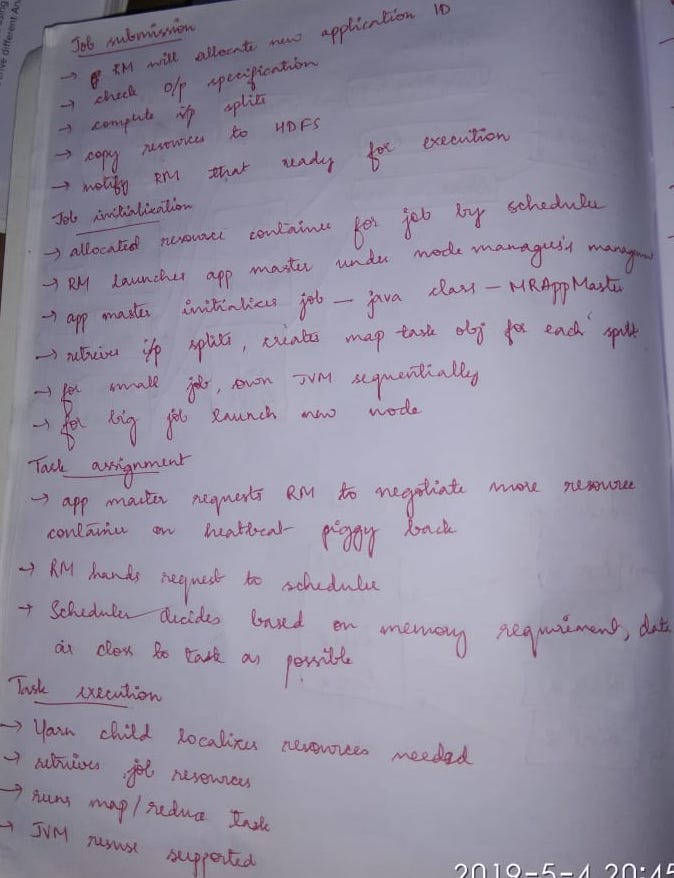 Job submission
→ RM will allocate new application ID
→ check o/p specification
→ compute i/p splits
→ copy resources to HDFS
→ notify RM that ready for execution
Job initialization
→ allocated resource container for job by scheduler
→ RM launches app master under node manager's managment
→ app master initializes job – java class – MRAppMaster
→ retrives i/p splits, creates map task obj for each split
→ for small job, own JVM sequentially
→ for big job launch new node
Task assignment
→ app master requests RM to negotiate more resource
container on heatbeat piggy back
→ RM hands request to scheduler
→ Scheduler decides based on memory requirement, data
as close to task as possible
Task execution
→ Yarn child localizes resources needed
→ retrives job resources
→ runs map/reduce task
→ JVM reuse supported
2019-5-4 20:45